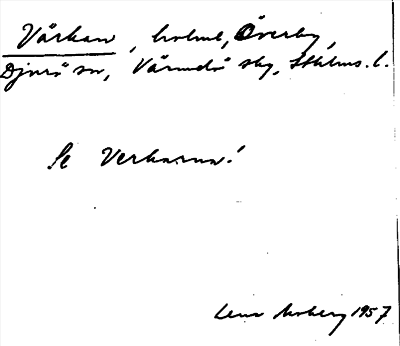 Värkan, holme, Överby,
Djurö sn, Värmdö skg, Sthlms. l.
Se Verkarna!
Lena Moberg 1957